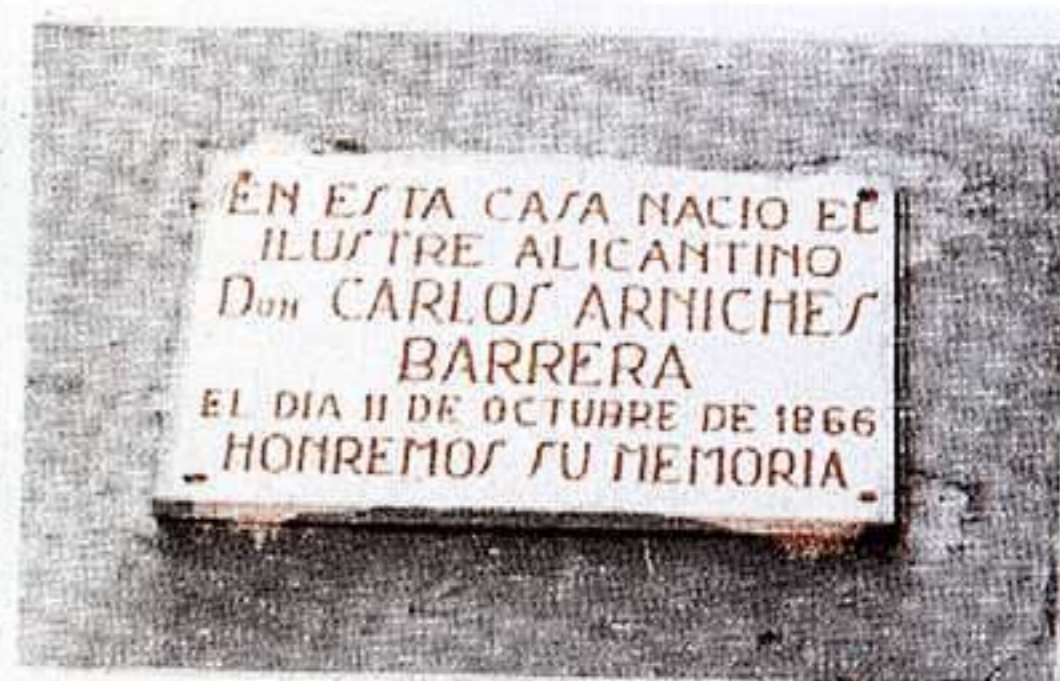 EN ESTA CASA NACIO EL
ILUSTRE ALICANTINO
Don CARLOS ARNICHES
BARRERA
EL DIA 11 DE OCTUBRE DE 1866
HONREMOS SU MEMORIA